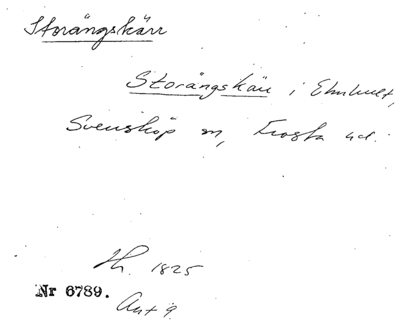 Storängskärr
Storängskärr i Ekhult,
Svensköp sn, Frosta hd.
Lh. 1825
Nr 6789.
Akt 9.